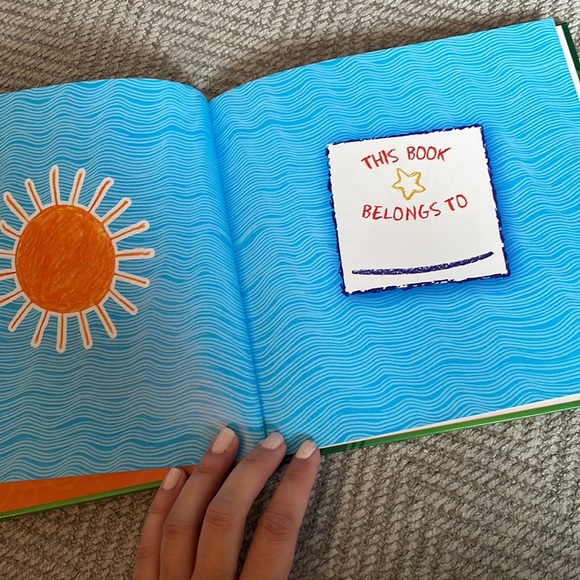 THIS BOOK
BELONGS TO